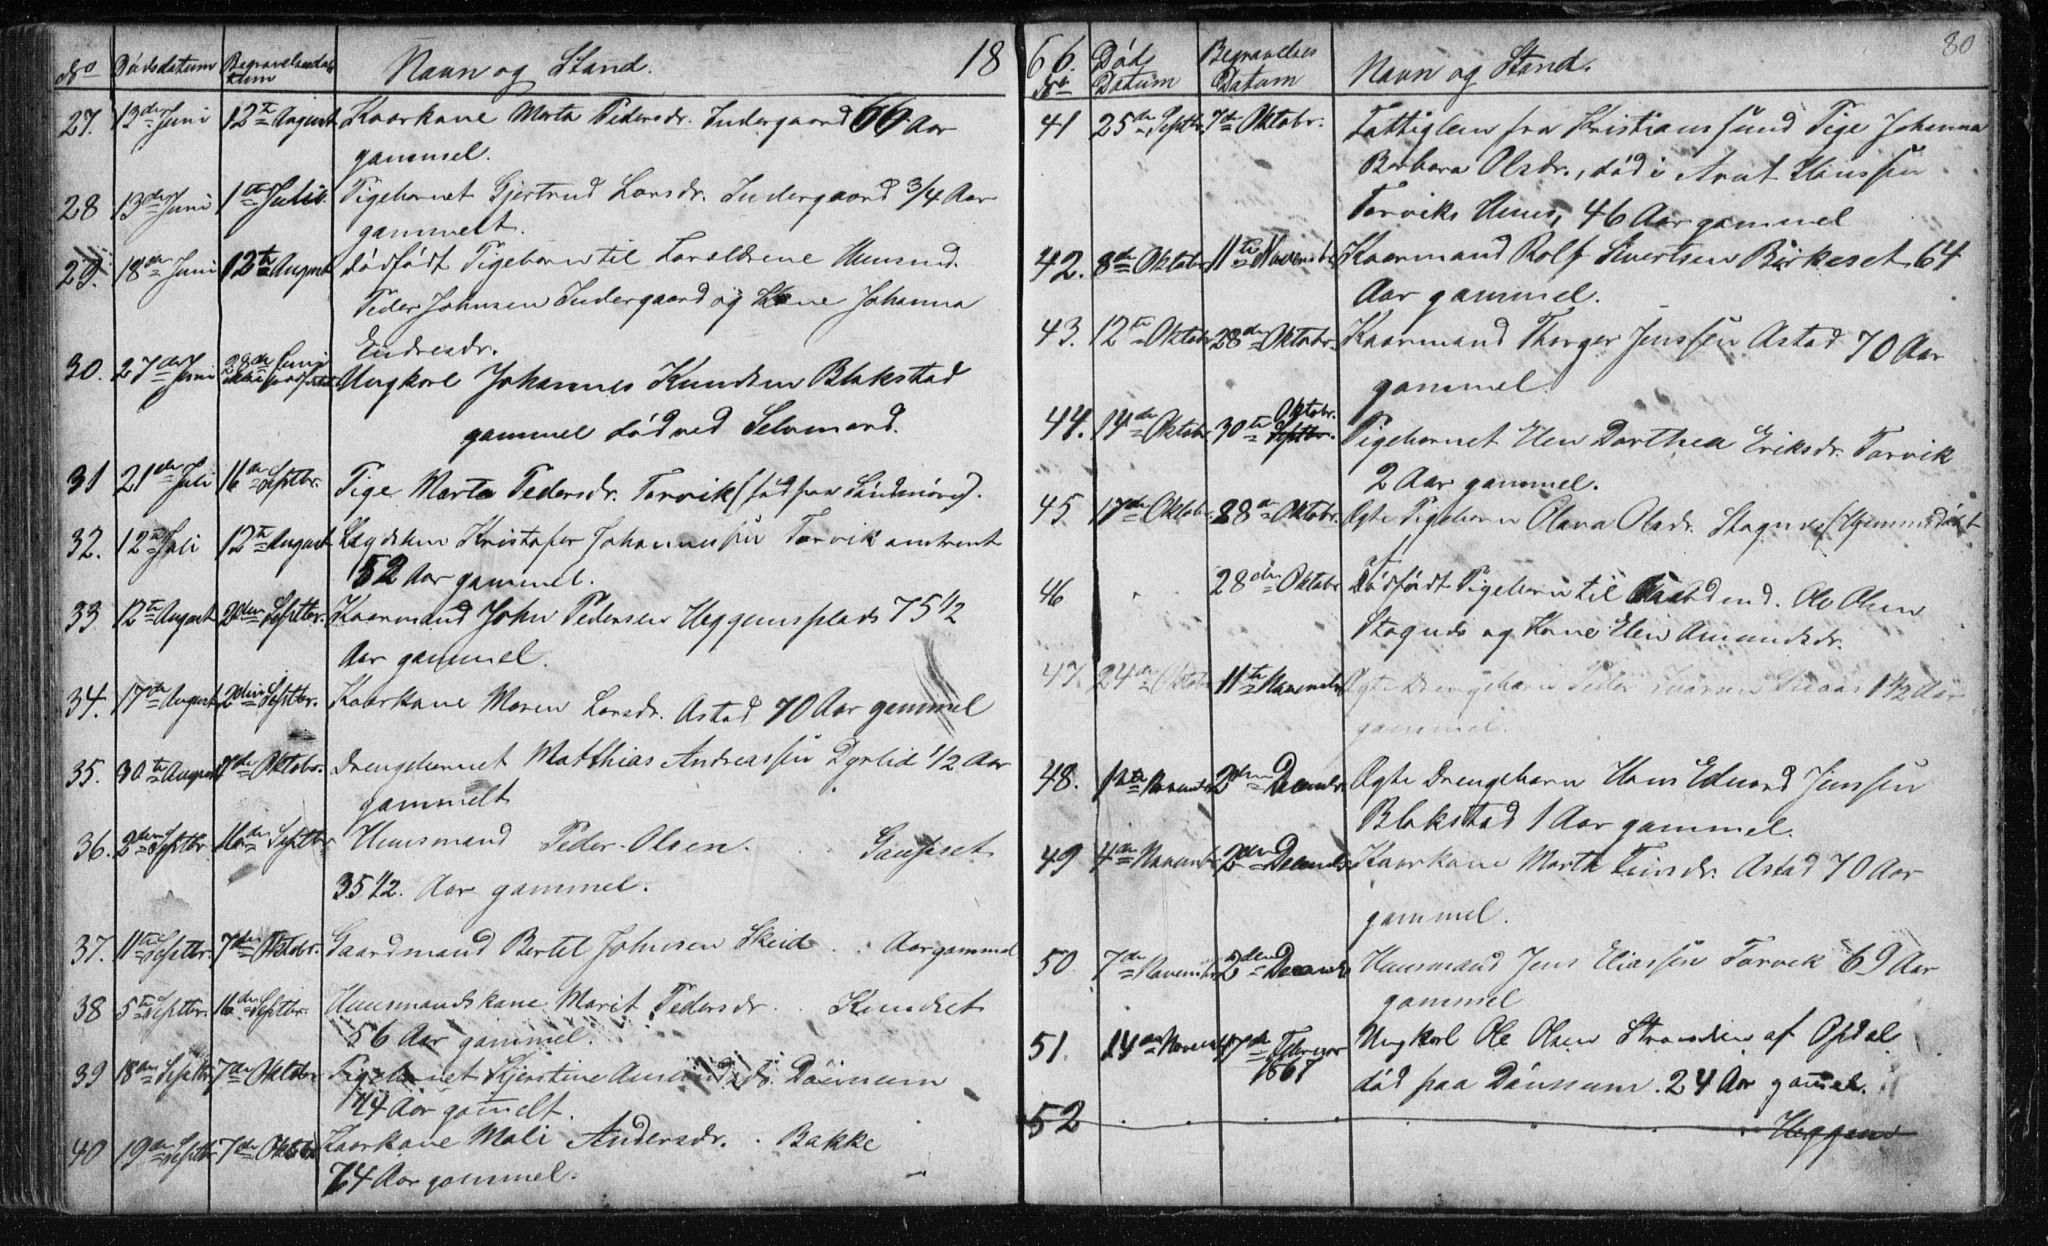 No Dödsdatum Begravelsesdatum Navn og Stand. 18
27. 13de Juni 12te August Kaarkone Marta Pedersdr. Indergaard 66 Aar
gammel.
28 13de Juni 1ste Juli Pigebarnet Gjertrud Larsdr. Indergaard 3/4 Aar
gammelt.
29. 18de Juni 12te August Dödfödt Pigebarn til Husmd.
Peder Johnsen Indergaard og Kone Johanna
Endresdr.
30. 27de Juni 28de Juni Ungkarl Johannes Knudsen Blakstad
gammel död ved Selvmord.
31 21de Juli 16de Septbr. Pige Marta Pedersdr. Torvik (föd paa Söndmöre).
32. 12te Juli 12te August Lægdslem Kristofer Johannessen Torvik omtrent
52 Aar gammel.
33. 12te August 2den Septbr. Kaarmand John Pedersen Heggemsplads 75 1/2
Aar gammel.
34. 17de August 2den Septbr. Kaarkone Maren Larsdr. Astad 70 Aar gammel
35. 30te August 7de Oktobr. Drengebarnet Matthias Andreassen Dyrlid 1/2 Aar
gammelt
36. 2den Septbr. 16de Septbr Huusmand Peder Olsen. Gaupset
35 1/2. Aar gammel.
37. 11te Septbr. 7de Oktobr. Gaardmand Bertel Johnsen Skeid . . Aar gammel
38 5te Septbr. 16de Septbr. Huusmandskone Marit Pedersdr . . Kundset
56 Aar gammel.
39 18de Septbr 7de Oktobr Pigebarnet Kjerstine Amundsdr. Döinum
1/4 Aar gamelt.
40 19de Septbr 7de Oktobr Kaarkone Mali Andersdr. . Bakke
74 Aar gammel.
66. 80
No Döds Datum Begravelses Datum Navn og Stand.
41 25de Septbr 7de Oktobr. Fattiglem fra Kristianssund Pige Johanna
Barbara Olsdr., död i Arnt Hanssen
Torviks Huus, 46 Aar gammel
42. 8de Oktobr 11te Novembr Kaarmand Rolf Sivertsen Birkeset 64
Aar gammel.
43. 12te Oktobr 28de Oktobr. Kaarmand Thorger Jenssen Astad 70 Aar
gammel
44. 14de Oktobr 30te Septbr. Oktobr. Pigebarnet Elen Dorthea Eriksdr. Torvik
2 Aar gammel.
45. 17de Oktobr. 28de Oktobr. Ægte Pigebarn Olava Olsdr. Stagnes (Hjemmedöbt
46 28de Oktobr Dödfödt Pigebarn til Ole Olsen
Stagnes og Kone Elen Amundsdr.
47. 24de Oktobr 11te Novembr Ægte Drengebarn Peder 1 1/2 Aar
gammel.
48. 1ste Novembr 2den Decembr. Ægte Drengebarn Hans Eduard Jenssen
Blakstad 1 Aar gammel.
49 4de Novembr. 2den Decembr Kaarkone Marta Finsdr. Astad 70 Aar
gammel.
50 7de Novembr 2den Decembr Huusmand Jens Eliassen Torvik 69 Aar
gammel
51. 14de Novembr 17de Februar 1867 Ungkarl Ole Olsen Stranden af Opdal
död paa Dönnum. 24 Aar gamel.
52 . . . . Heggem